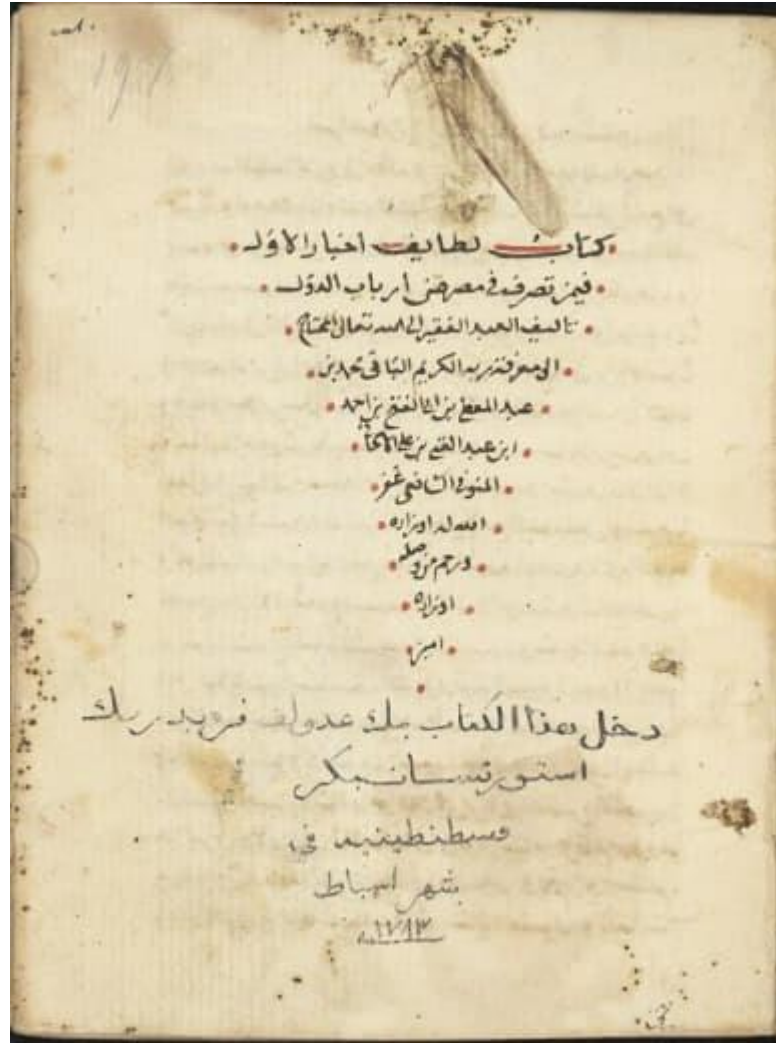 كتاب لطايف اخبار الاول
فيمن تصرف في مصر من ارباب الدول
تاليف العبد الفقير الى الله تعالى المحتاج
الى معرفة ربه الكريم الباقي محمد بن
عبد المعطي بن ابي الفتح بن احمد
ابن عبد الغني بن علي الاسحاقي
المنوفي الشافعي غفر
الله له اوزاره
ورحم من
اوزاره
امين
دخل هذا الكتاب بملك عدولف فريدريك
استورتسانبكر
قسطنطينيه في
بشهر اسباط
١٧٨٣